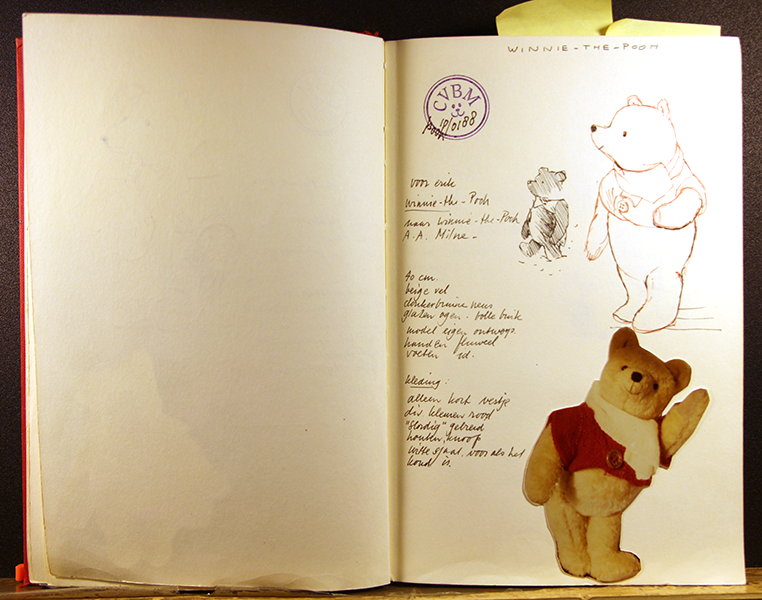 WINNIE-THE-POOH
CVBM
10/0188
pooh
voor erik
winnie-the-Pooh
naar winnie-the-Pooh
A.A. Milne -
40 cm.
beige vel
donkerbruine neus
glazen ogen. bolle buik
model eigen ontwerp.
handen fluweel
voeten id.
kleding:
alleen kort vestje
div. kleuren rood
"slordig" gebreid
houten knoop
witte sjaal, voor als het
koud is.